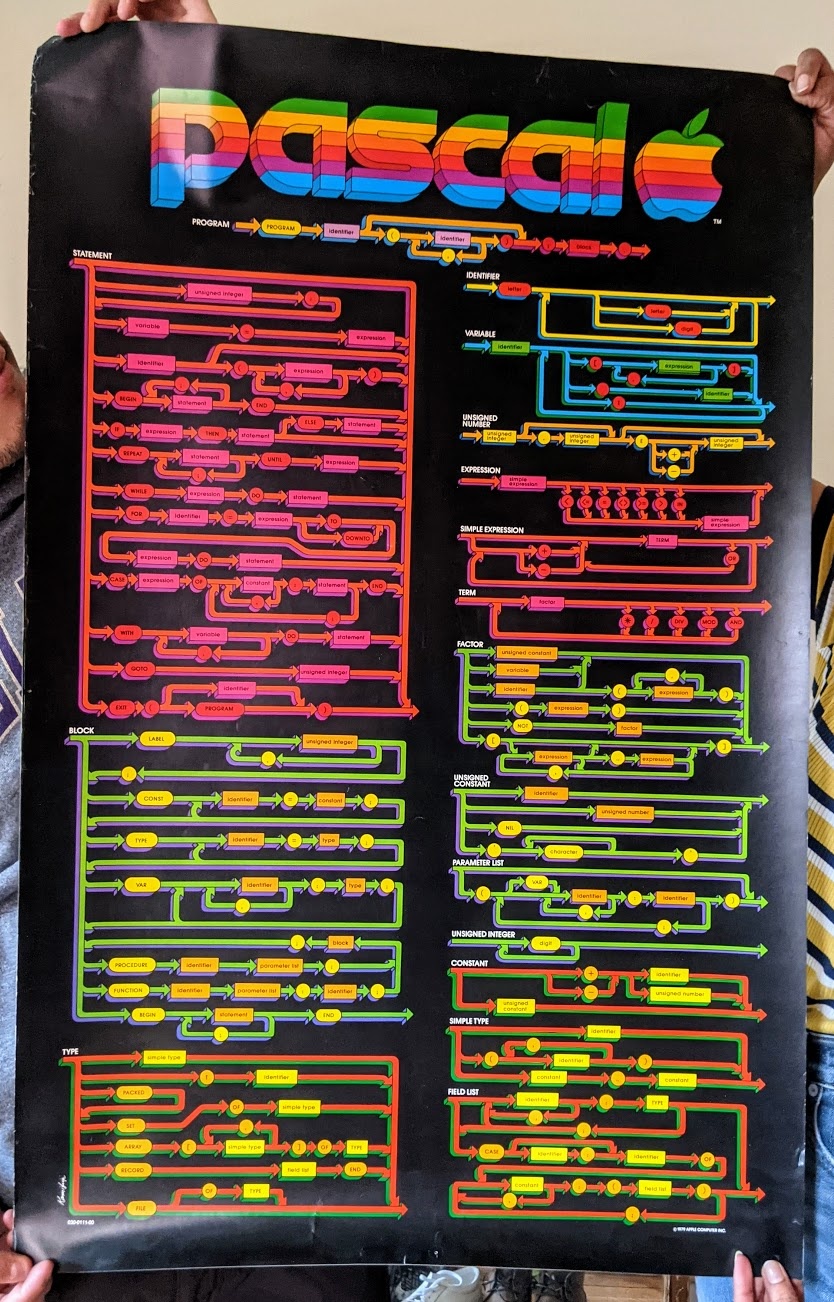 pascal
TM
PROGRAM PROGRAM identifier ( identifier , ) ; block .
STATEMENT
unsigned integer :
variable = expression
identifier ( expression , )
BEGIN statement ; END
IF expression THEN statement ELSE statement
REPEAT statement ; UNTIL expression
WHILE expression DO statement
FOR identifier = expression TO
DOWNTO
expression DO statement
CASE expression OF constant : statement END
, ;
WITH variable , DO statement
GOTO unsigned integer
identifier
EXIT ( PROGRAM )
BLOCK
LABEL unsigned integer
,
;
CONST identifier = constant ;
TYPE identifier = type ;
VAR identifier : type ;
,
; block
PROCEDURE identifier parameter list ;
FUNCTION identifier parameter list : identifier ;
BEGIN statement END
;
TYPE
simple type
↑ identifier
PACKED
SET OF simple type
ARRAY [ simple type , ] OF TYPE
RECORD field list END
FILE OF TYPE
030-0111-00
IDENTIFIER
letter
letter
digit
VARIABLE
identifier
[ expression , ]
. identifier
↑
UNSIGNED
NUMBER
unsigned
integer . unsigned
integer E + - unsigned
integer
EXPRESSION
simple
expression
simple
expression
SIMPLE EXPRESSION
+ - TERM
OR
TERM
factor
* / DIV MOD AND
FACTOR
unsigned constant
variable
identifier ( expression , )
( expression )
NOT factor
[ expression .. expression ]
,
UNSIGNED
CONSTANT
identifier
unsigned number
NIL
' character '
PARAMETER LIST
( VAR identifier , : identifier ; )
UNSIGNED INTEGER
digit
CONSTANT
+ - identifier
unsigned number
unsigned
constant
SIMPLE TYPE
identifier
( identifier , )
constant .. constant
FIELD LIST
identifier , : TYPE
;
CASE identifier : identifier OF
constant , : ( field list )
;
© 1979 APPLE COMPUTER INC.